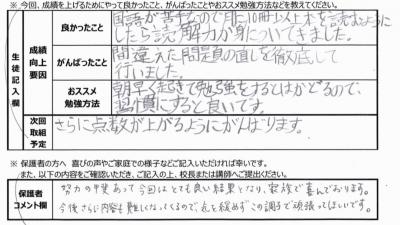 ※ 今回、成績を上げるためにやって良かったこと、がんばったことやおススメ勉強方法などを教えてください。
生徒記入欄
成績向上要因
良かったこと
国語が苦手なので月に10冊以上本を読むように
したら読解力が身についてきました。
がんばったこと
間違えた問題の直しを徹底して
行いました。
おススメ勉強方法
朝早く起きて勉強をするとはかどるので、
習慣にすると良いです。
次回取組予定
さらに点数が上がるようにがんばります。
※ 保護者の方へ 喜びの声やご家庭での様子などご記入いただければ幸いです。
また、以下の内容をご確認いただき、ご記入の上、校長または講師へご提出ください。
保護者コメント欄
努力の甲斐あって今回はとても良い結果となり、家族で喜んでおります。
今後さらに内容も難しくなってくるので、気を緩めずこの調子で頑張ってほしいです。